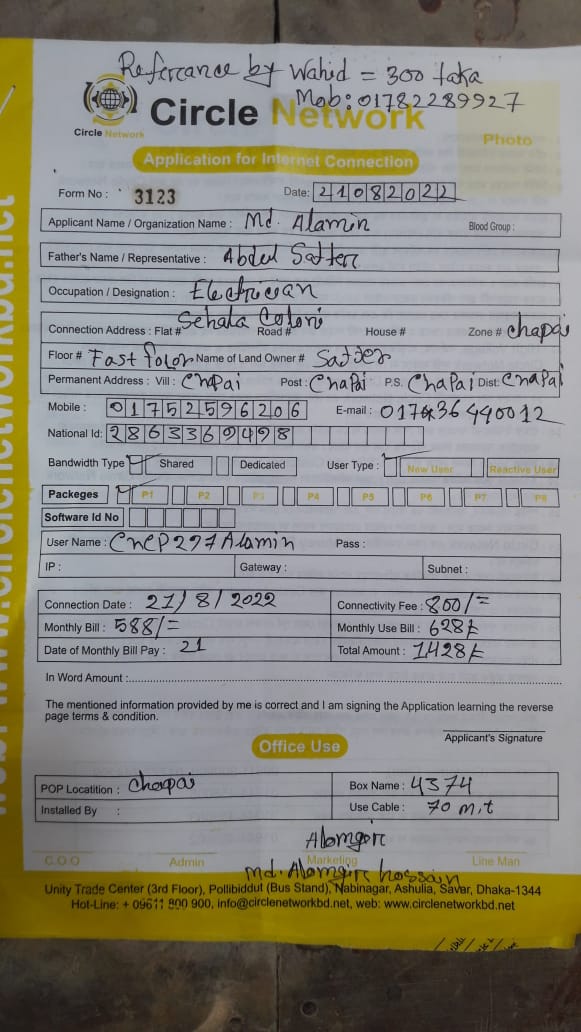 Referance by Wahid = 300 taka
Mob: 01782289927
Circle Network
Circle Network
Photo
Application for Internet Connection
Form No : 3123 Date: 21082022
Applicant Name / Organization Name : Md. Alamin Blood Group :
Father's Name / Representative : Abdul Satter
Occupation / Designation : Electrician
Connection Address : Flat # Sehala Coloni Road # House # Zone # chapai
Floor # Fast folor Name of Land Owner # Satter
Permanent Address : Vill : ChaPai Post : ChaPai P.S. ChaPai Dist: ChaPai
Mobile : 01752596206 E-mail :
National Id: 2863369498
Bandwidth Type Shared Dedicated User Type : New User Reactive User
Packeges P1 P2 P3 P4 P5 P6 P7 P8
Software Id No
User Name : CNCP297Alamin Pass :
IP : Gateway : Subnet :
Connection Date : 21/8/2022 Connectivity Fee : 800/=
Monthly Bill : 588/= Monthly Use Bill : 628/=
Date of Monthly Bill Pay : 21 Total Amount : 1428/=
In Word Amount :
The mentioned information provided by me is correct and I am signing the Application learning the reverse
page terms & condition.
Applicant's Signature
Office Use
POP Locatition : chapai Box Name : 4374
Installed By : Use Cable : 70 m,t
Alomgir
C.O.O Admin Marketing Line Man
md. Alomgir hossain
Unity Trade Center (3rd Floor), Pollibiddut (Bus Stand), Nabinagar, Ashulia, Savar, Dhaka-1344
Hot-Line: + 09611 800 900, info@circlenetworkbd.net, web: www.circlenetworkbd.net